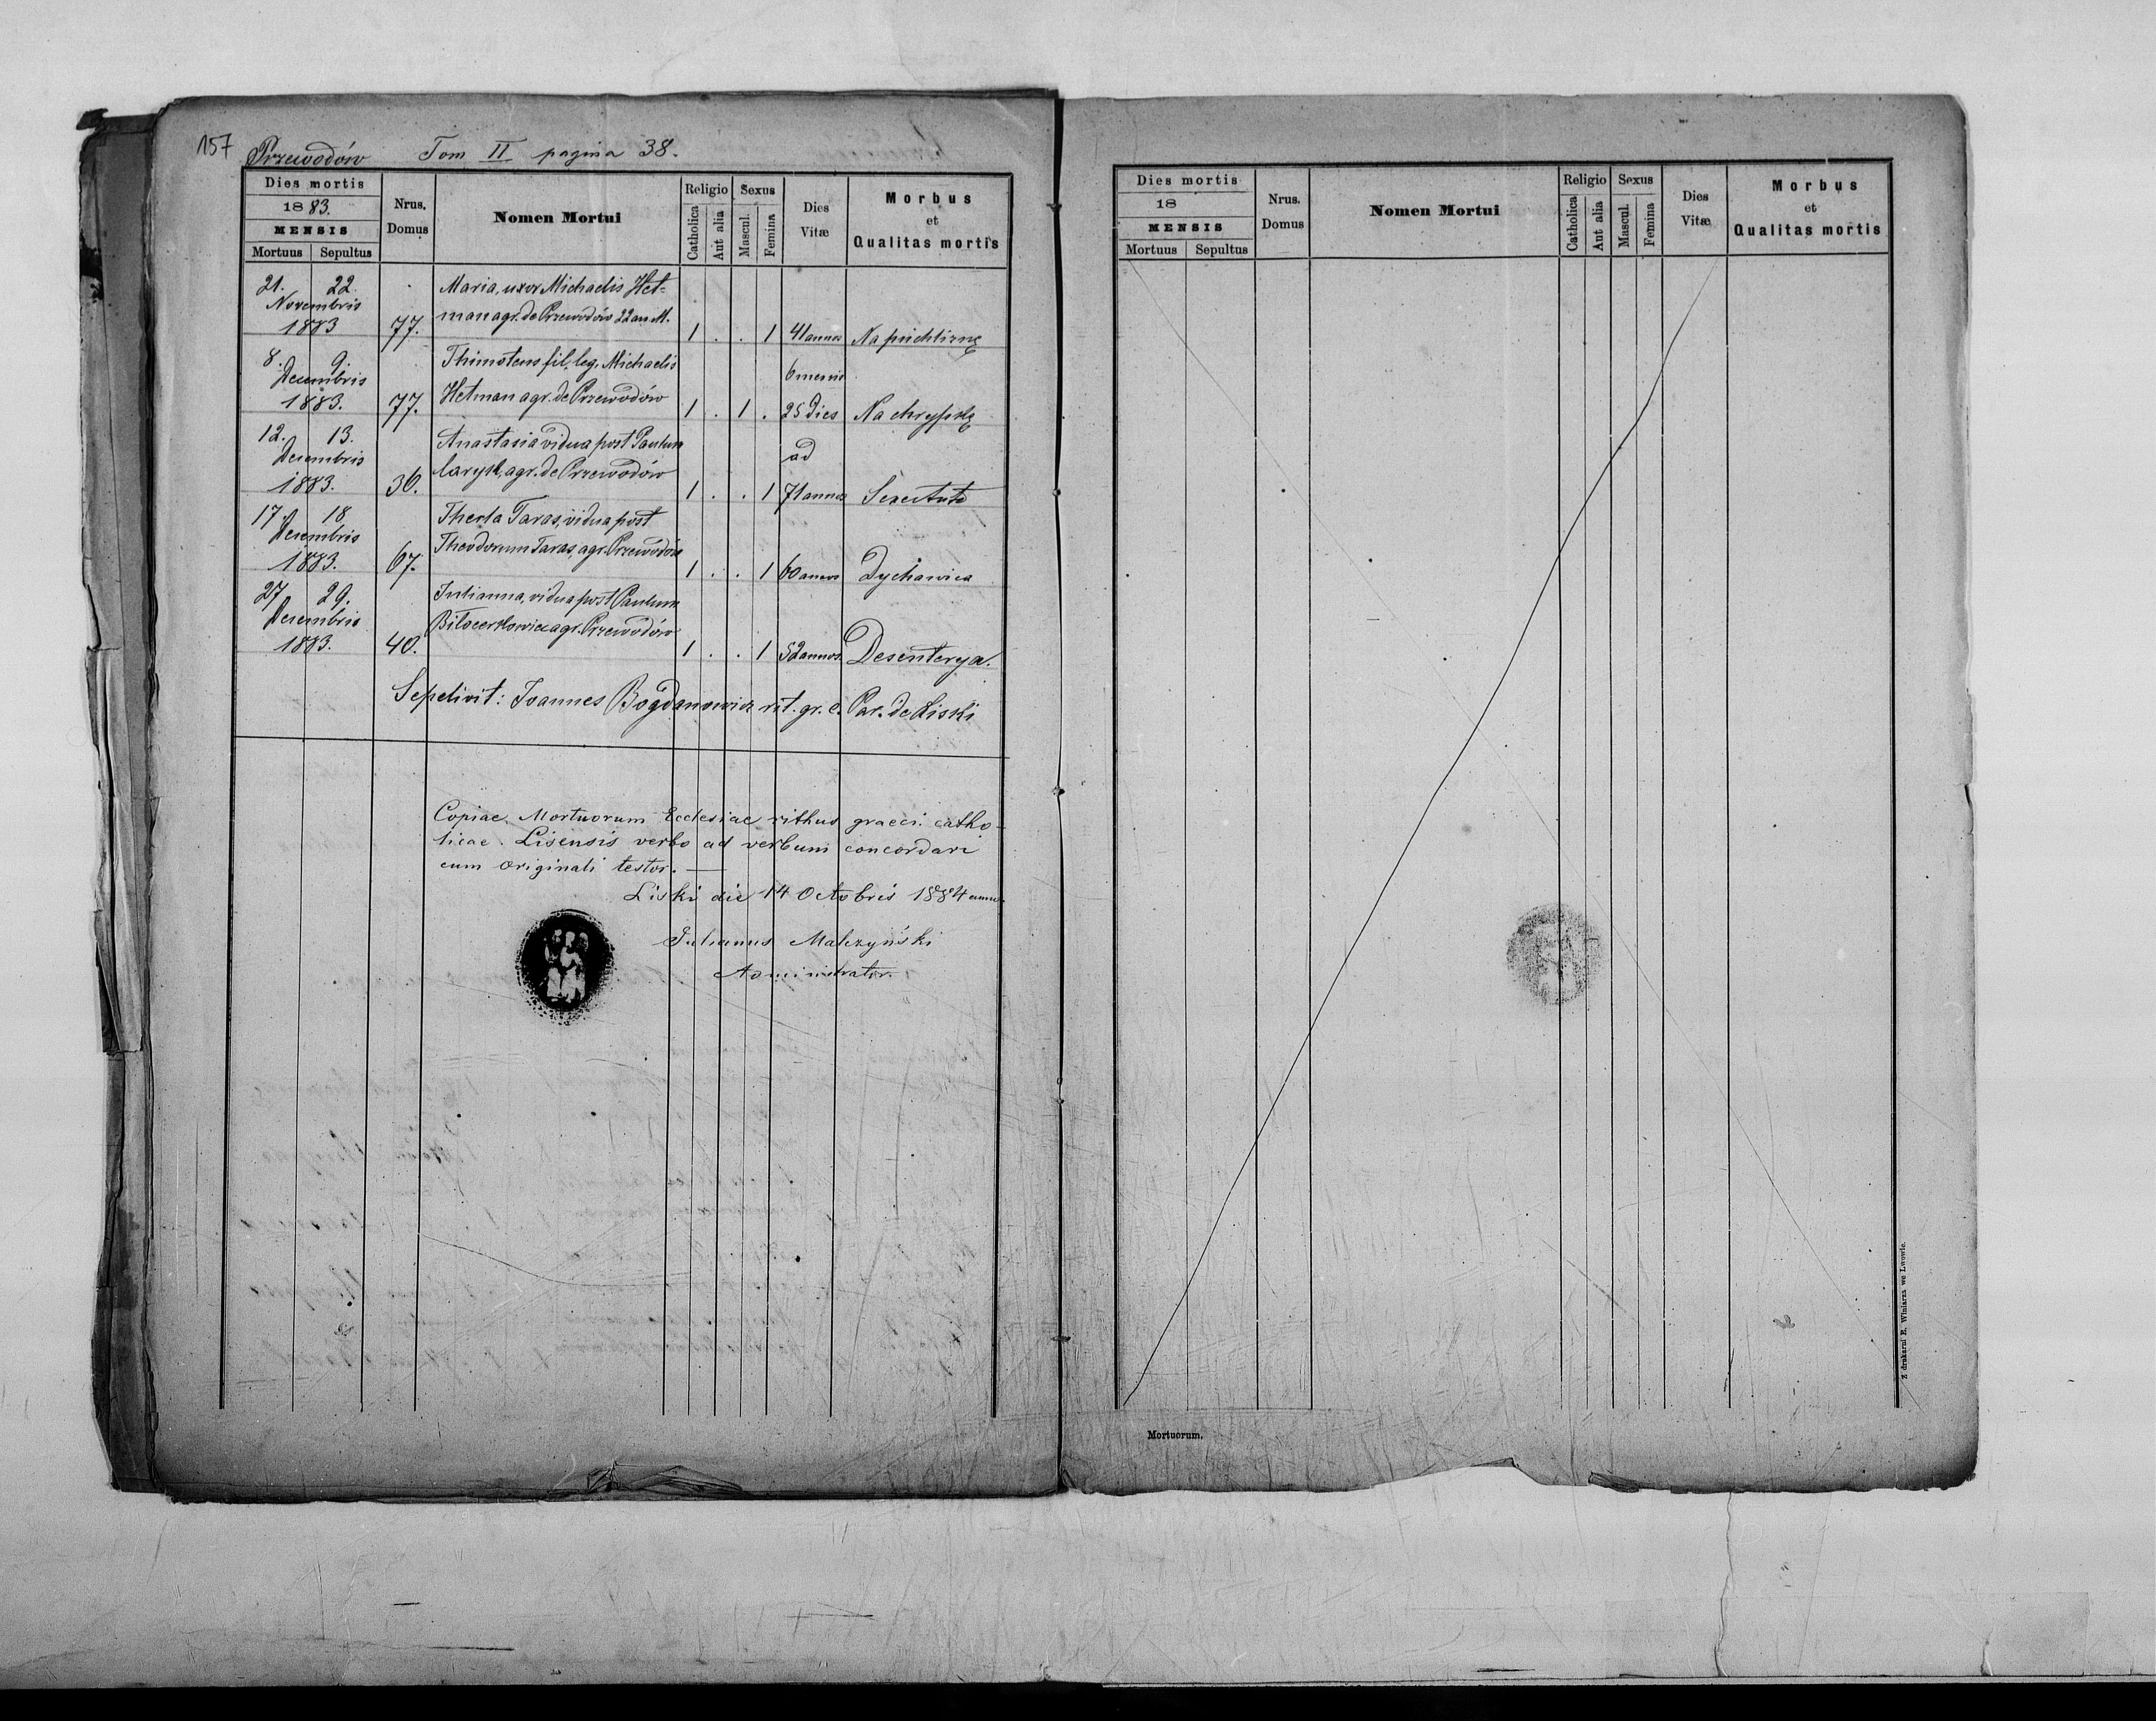 157 Przewodów Tom II pagina 38.
Dies mortis Nrus. Domus Nomen Mortui Religio Sexus Dies Vitæ Morbus et Qualitas mortis
1883.
MENSIS
Mortuus Sepultus Catholica Aut alia Mascul. Femina
21. 22. Maria, uxor Michaelis Het=
Novembris man agr. de Przewodów 22 an M.
1883 77. 1 . . 1 41 annos Na puchlirnę
8. 9. Thimoteus fil. leg. Michaelis 6 mensis
Decembris Hetman agr. de Przewodów
1883. 77. 1 . 1 . 25 dies Na chrypkę
12. 13. Anastasia vidua post Paulum ad
Decembris agr. de Przewodów
1883. 36. 1 . . 1 71 annos Senectute
17. 18. Thecla Taras, vidua post
Decembris Theodorum Taras, agr. Przewodów
1883. 67. 1 . . 1 60 annos Dychawica
27 29. Julianna, vidua post Paulum
Decembris agr. Przewodów
1883. 40. 1 . . 1 52 annos. Desenterya.
Sepelivit: Joannes Bogdanowicz rit. gr. c. Par. de Liski
Copiae Mortuorum Ecclesiae rithus graeci catho-
licae Lisensis verbo ad verbum concordare
cum originali testor. —
Liski die 14 Octobris 1884 anno.
Julianus Malczyński
Administrator.
Dies mortis Nrus. Domus Nomen Mortui Religio Sexus Dies Vitæ Morbus et Qualitas mortis
18
MENSIS
Mortuus Sepultus Catholica Aut alia Mascul. Femina
Mortuorum.
Z drukarni E. Winiarza we Lwowie.